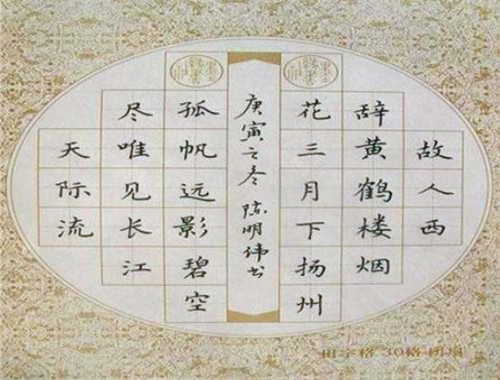 故人西
辞黄鹤楼烟
花三月下扬州
庚寅之冬 陈明伟书
孤帆远影碧空
尽唯见长江
天际流
田字格 30格